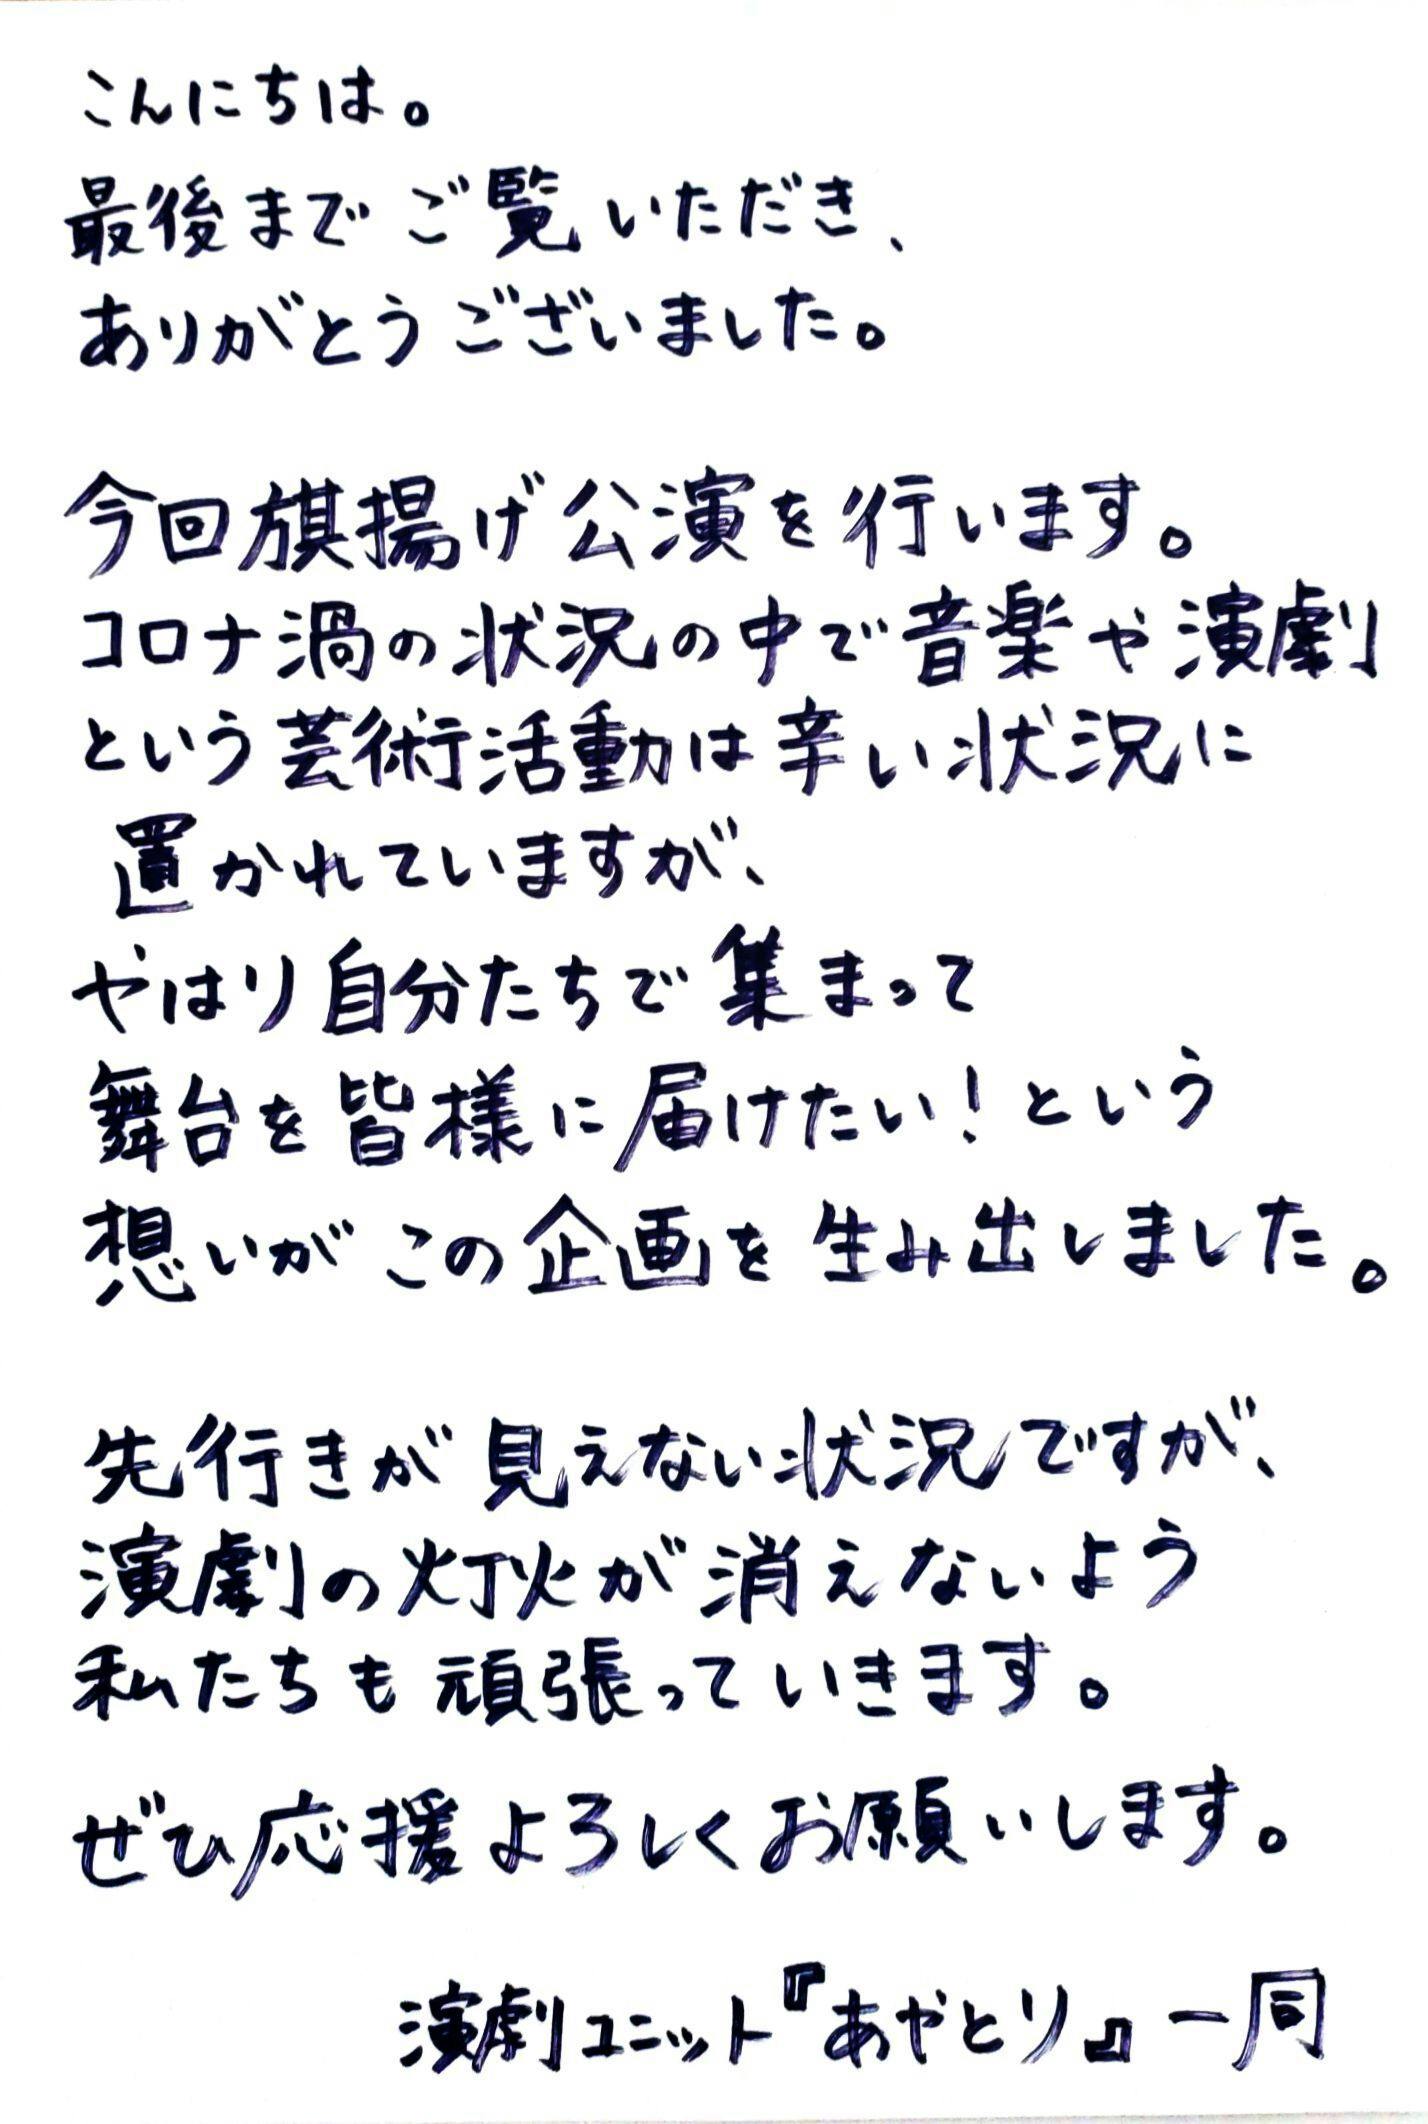 こんにちは。
最後までご覧いただき、
ありがとうございました。
今回旗揚げ公演を行います。
コロナ渦の状況の中で音楽や演劇
という芸術活動は辛い状況に
置かれていますが、
やはり自分たちで集まって
舞台を皆様に届けたい!という
想いがこの企画を生み出しました。
先行きが見えない状況ですが、
演劇の灯火が消えないよう
私たちも頑張っていきます。
ぜひ応援よろしくお願いします。
演劇ユニット『あやとり』一同